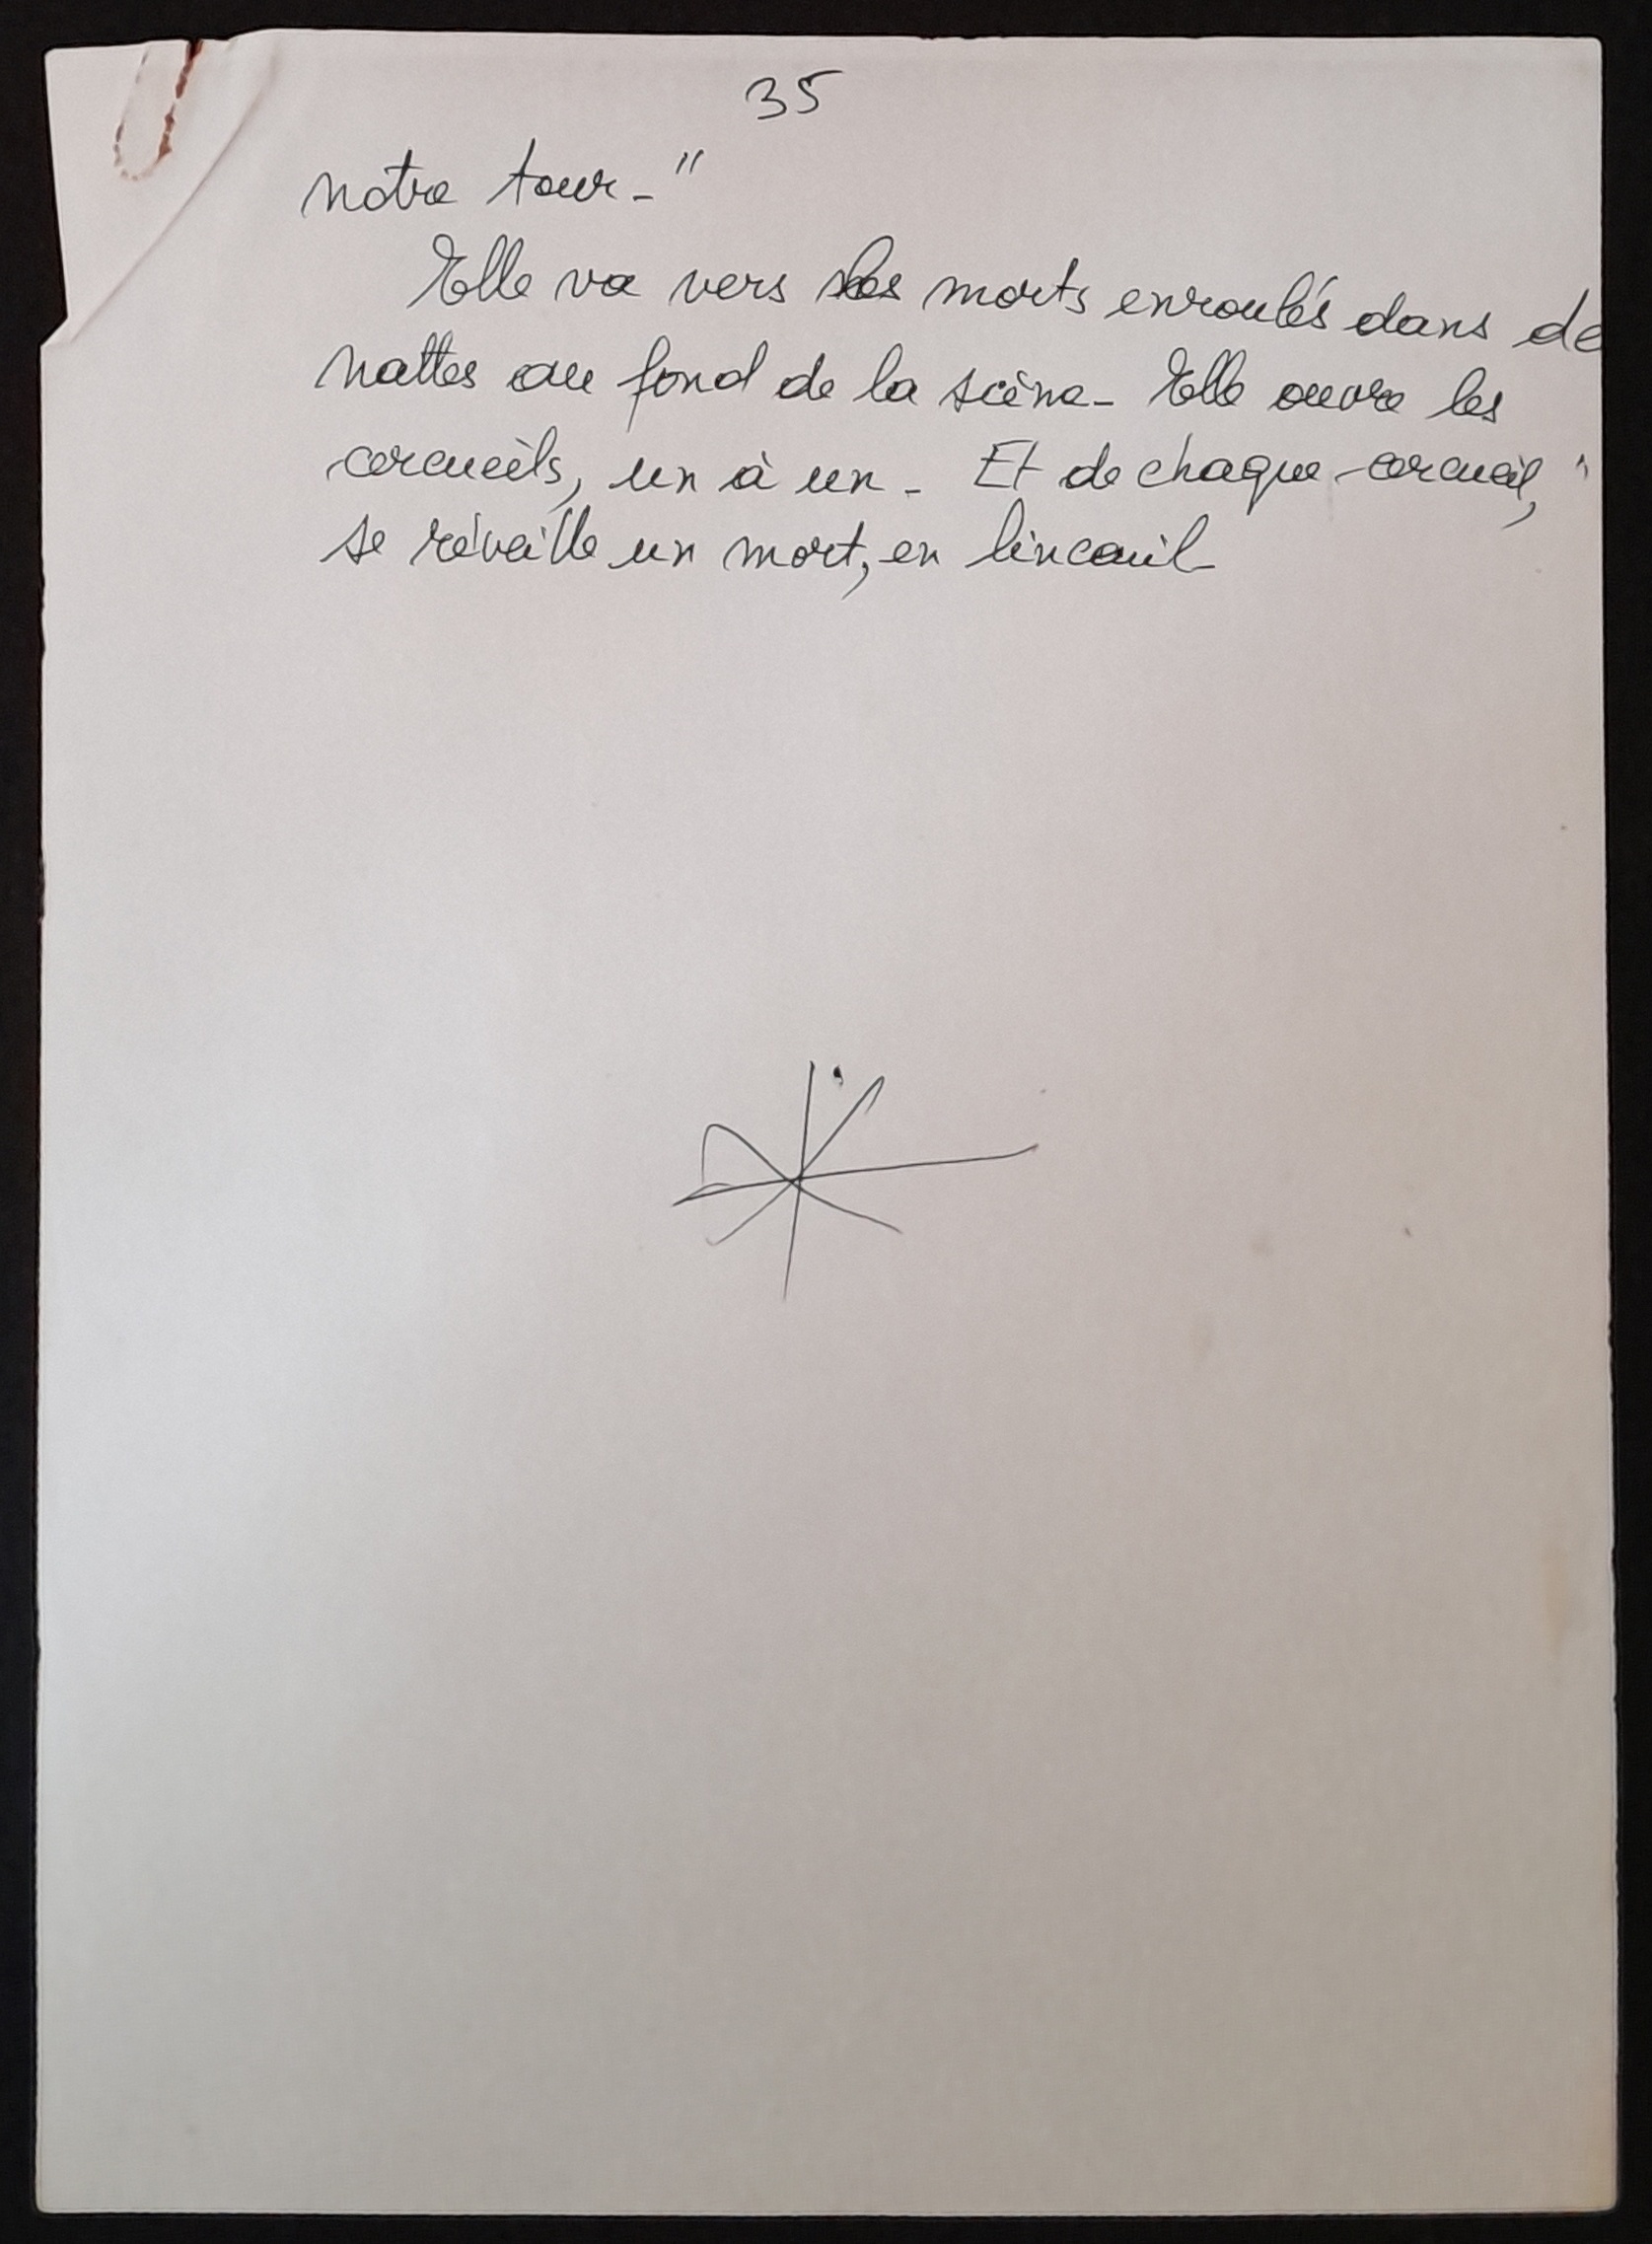 35
notre tour - "
Elle va vers les morts enroulés dans de
nattes au fond de la scène - Elle ouvre les
cercueils, un à un - Et de chaque cercueil,
se réveille un mort, en linceuil -